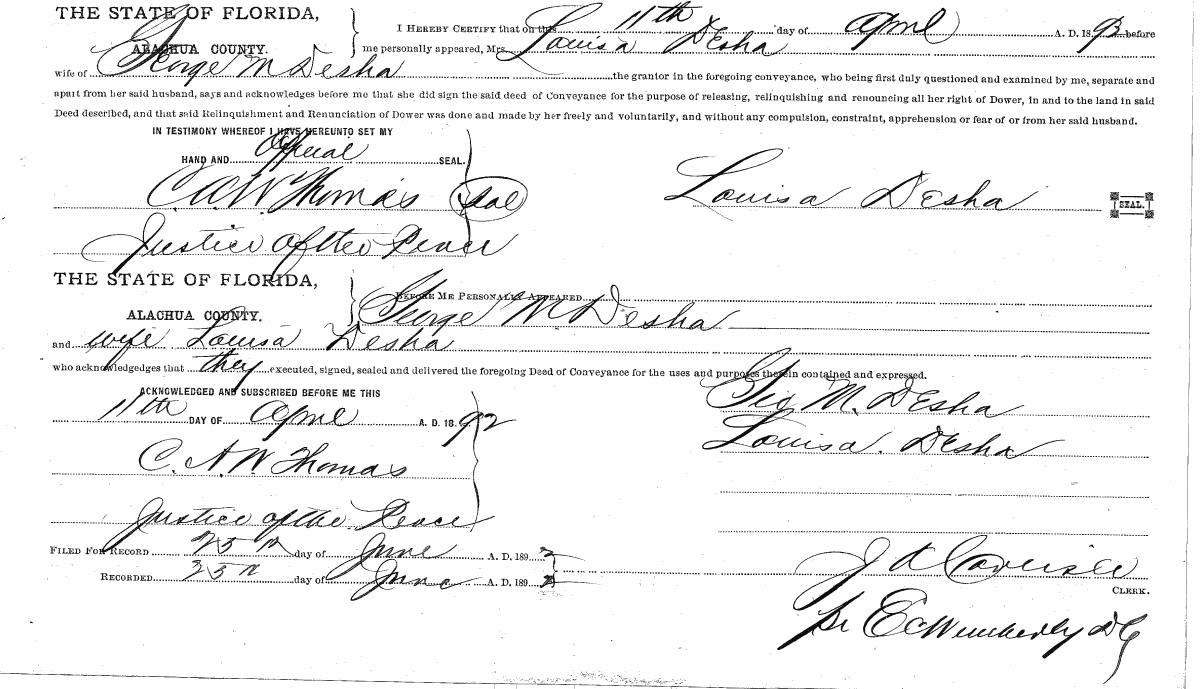 THE STATE OF FLORIDA,
ALACHUA COUNTY.
I HEREBY CERTIFY that on this 11th day of April A. D. 18 before
me personally appeared, Mrs. Louisa Desha
wife of George M Desha the grantor in the foregoing conveyance, who being first duly questioned and examined by me, separate and
apart from her said husband, says and acknowledges before me that she did sign the said deed of Conveyance for the purpose of releasing, relinquishing and renouncing all her right of Dower, in and to the land in said
Deed described, and that said Relinquishment and Renunciation of Dower was done and made by her freely and voluntarily, and without any compulsion, constraint, apprehension or fear of or from her said husband.
IN TESTIMONY WHEREOF I HAVE HEREUNTO SET MY
HAND AND Official SEAL.
C. A. W Thomas Seal
Louisa Desha SEAL.
Justice of the Peace
THE STATE OF FLORIDA,
ALACHUA COUNTY.
BEFORE ME PERSONALLY APPEARED
George M Desha
and wife Louisa Desha
who acknowledgedges that they executed, signed, sealed and delivered the foregoing Deed of Conveyance for the uses and purposes therein contained and expressed.
ACKNOWLEDGED AND SUBSCRIBED BEFORE ME THIS
11th DAY OF April A. D. 18 92
Geo M. Desha
Louisa. Desha
C. A. W Thomas
Justice of the Peace
FILED FOR RECORD 25th day of June A. D. 189 2
RECORDED 25th day of June A. D. 189 2
J A Carlisle
CLERK.
E C Wimberly DC